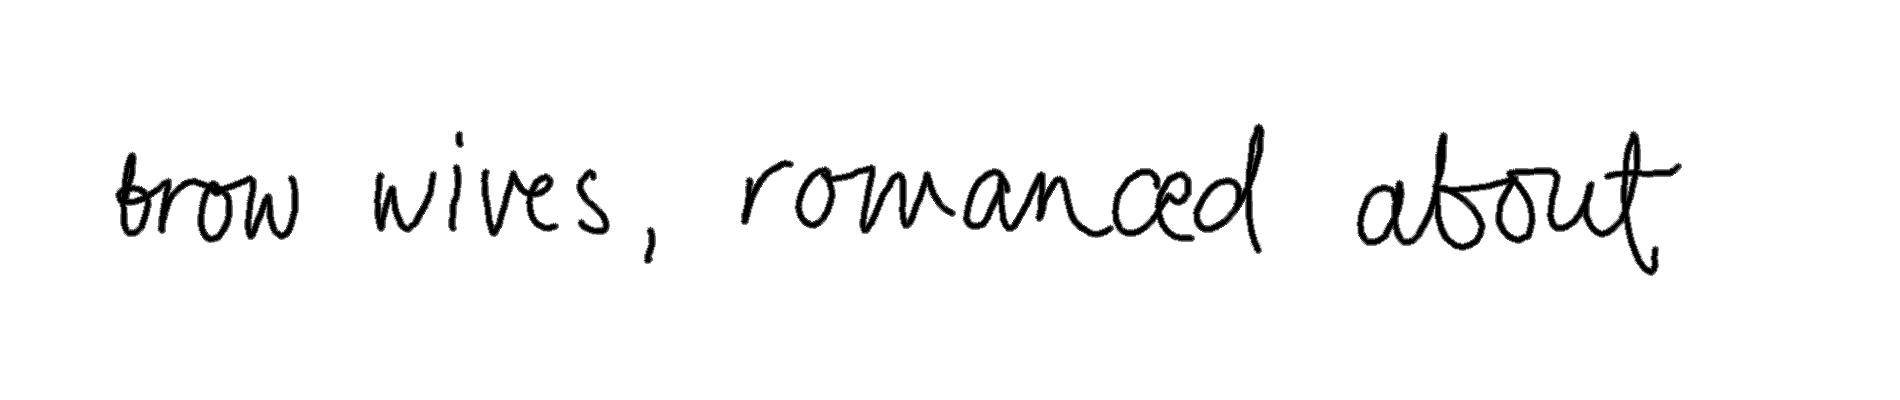 brow wives, romanced about